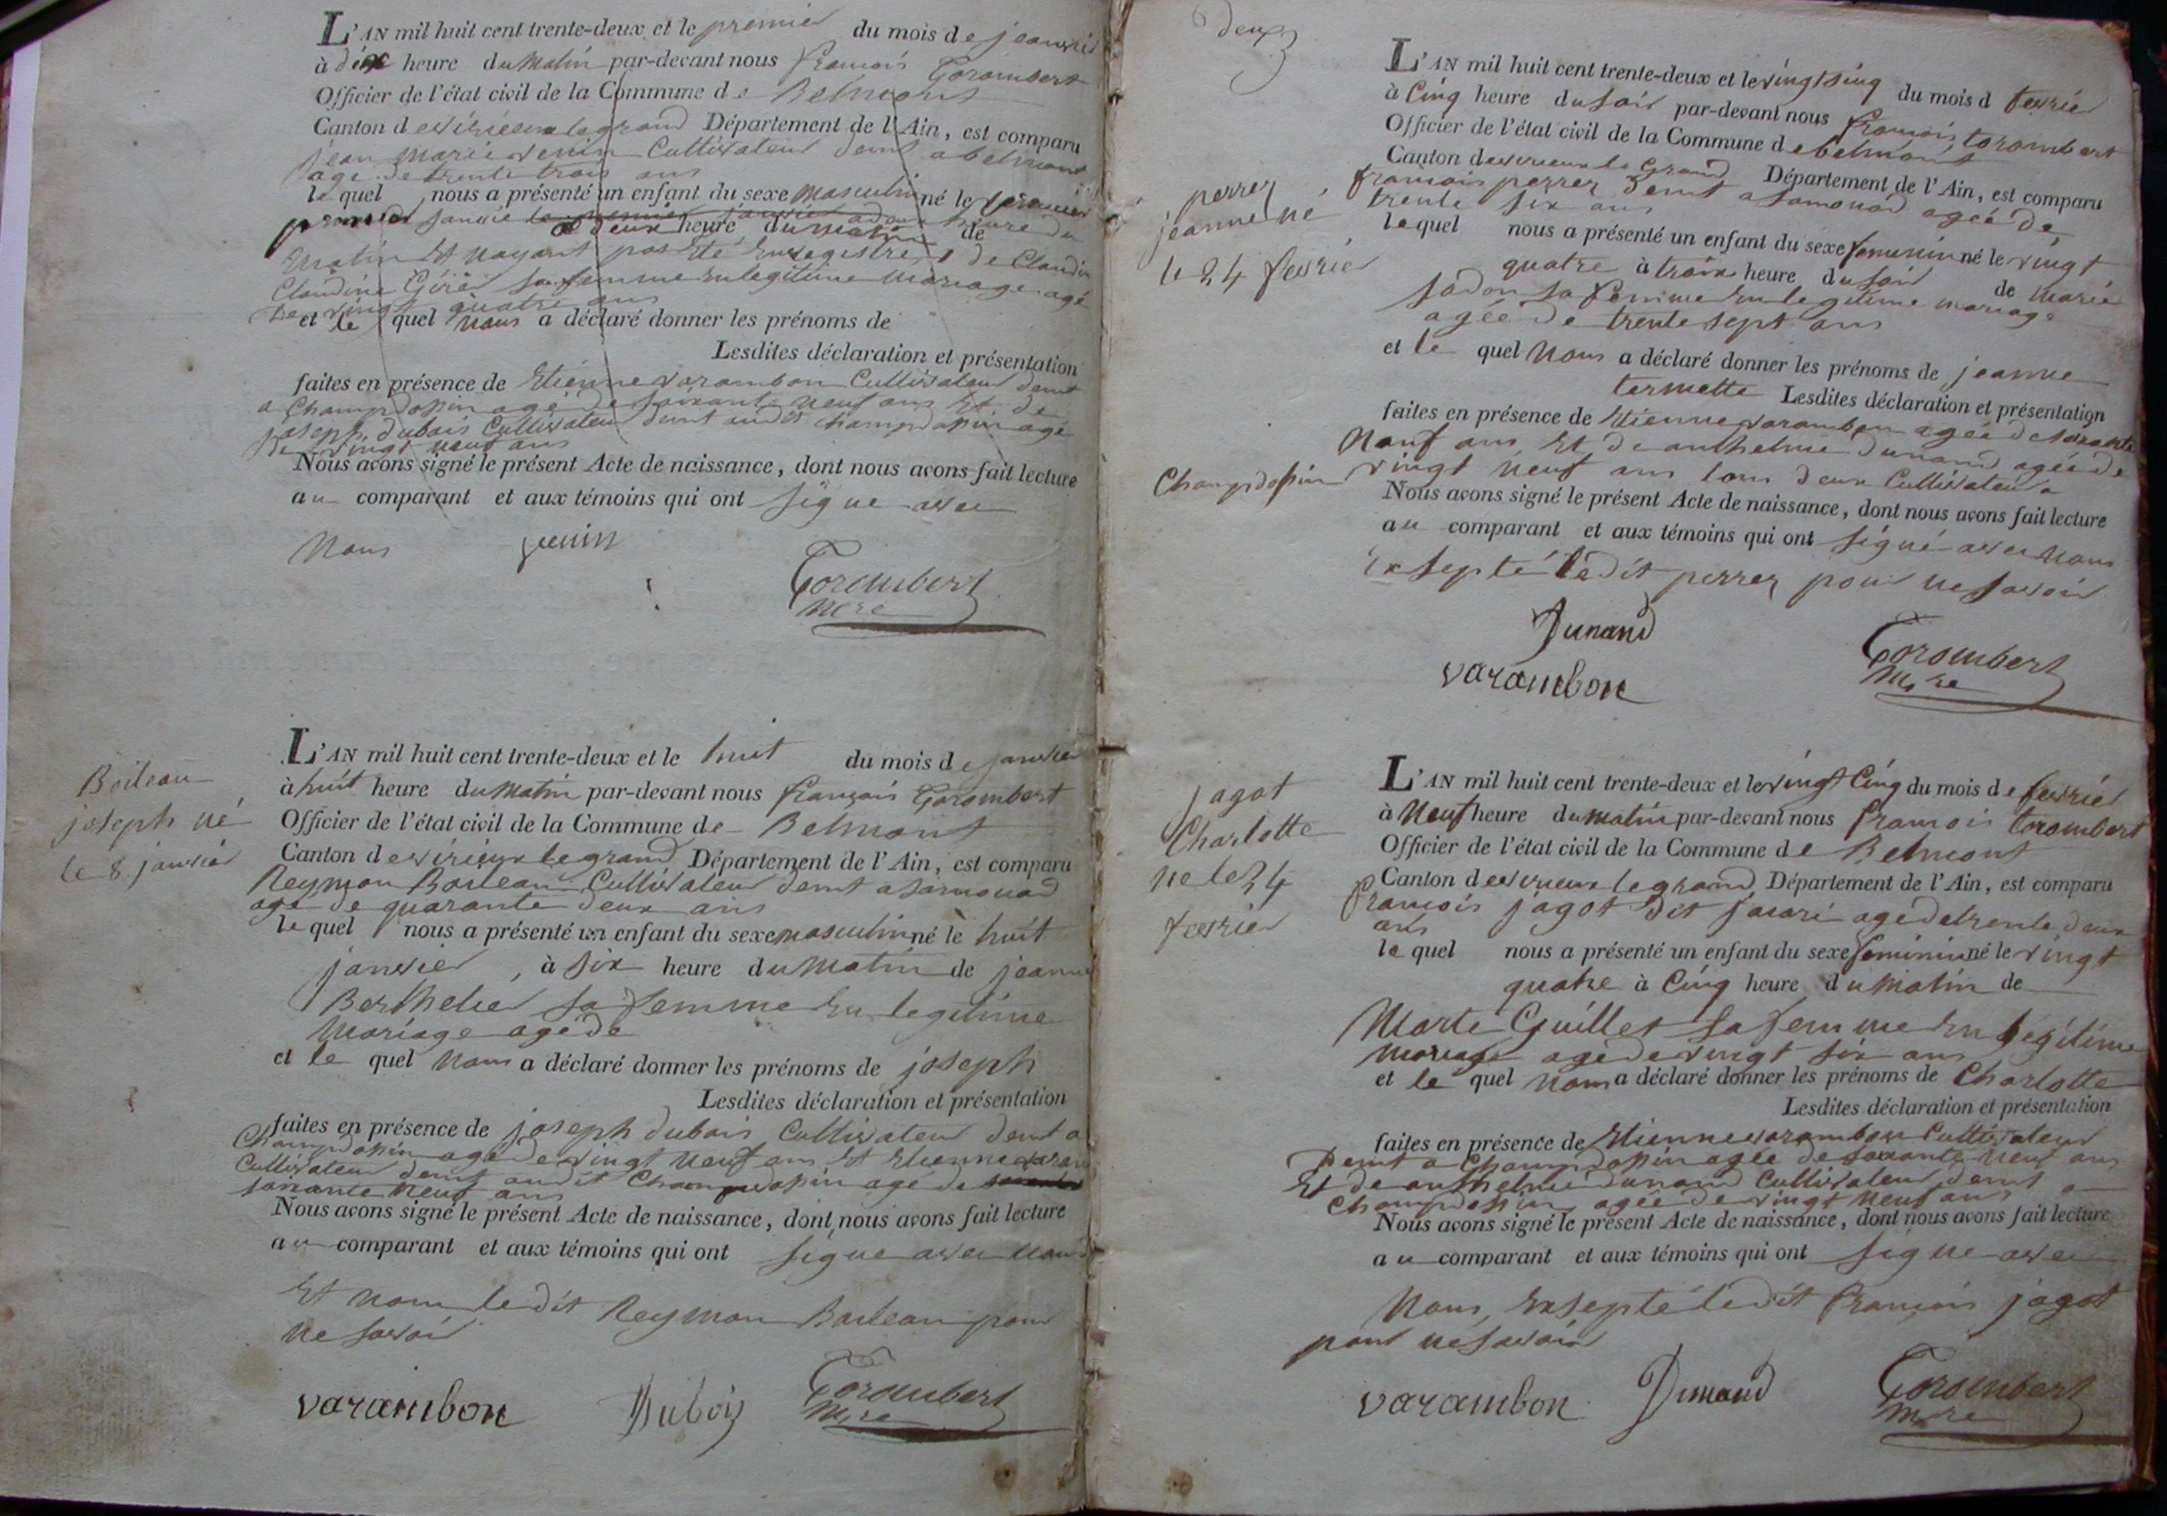 L'AN mil huit cent trente-deux et le premier du mois de jeanvier
à dix heure du matin par-devant nous françois Torombert
Officier de l'état civil de la Commune de Belmont
Canton de virieux le grand Département de l'Ain, est comparu
jean marie venin Cultivateur demt a belmont
age de trente trois ans
le quel nous a présenté un enfant du sexe masculin né le premier
janvie à deux heure du matin de
matin Et nayant pas Eté Enregistre, de Claudin
Claudine sa femme En legitime mariage agé
de vingt quatre ans
et le quel nous a déclaré donner les prénoms de
Lesdites déclaration et présentation
faites en présence de Etienne varambon Cultivateur demt
a Champdossin agé de soixante neuf ans Et de
joseph dubois Cultivateur demt audit champdossin agé
de vingt neuf ans
Nous avons signé le présent Acte de naissance, dont nous avons fait lecture
au comparant et aux témoins qui ont signe avec
Nous
Torombert
Mre
Boileau
joseph né
le 8 janvier
L'AN mil huit cent trente-deux et le huit du mois de janvier
à huit heure du matin par-devant nous françois Torombert
Officier de l'état civil de la Commune de Belmont
Canton de virieux le grand Département de l'Ain, est comparu
Reymon Boileau Cultivateur demt a samonod
age de quarante deux ans
le quel nous a présenté un enfant du sexe masculin né le huit
janvier, à six heure du matin de jeanne
Berthelier sa femme En legitime
Mariage agé de
et le quel nous a déclaré donner les prénoms de joseph
Lesdites déclaration et présentation
faites en présence de joseph dubois Cultivateur demt a
Champdossin agé de vingt neuf ans Et Etienne varam
Cultivateur demt audit Champdossin agé de
soixante neuf ans
Nous avons signé le présent Acte de naissance, dont nous avons fait lecture
au comparant et aux témoins qui ont signe avec nous
Et nom ledit Reymon Boileau pour
ne savoir
varambon Dubois Torombert
Mre
deux
perrez
jeanne né
le 24 fevrier
L'AN mil huit cent trente-deux et le vingt sinq du mois d fevrier
à Cinq heure du soir par-devant nous françois torombert
Officier de l'état civil de la Commune de belmont
Canton de virieux le Grand Département de l'Ain, est comparu
francois perrez demt a samonod agée de
trente six ans
lequel nous a présenté un enfant du sexe femenin né le vingt
quatre à trois heure du soir de marie
sadon sa femme En legitime mariage
agée de trente sept ans
et le quel nous a déclaré donner les prénoms de jeanne
termette Lesdites déclaration et présentation
faites en présence de Etienne varambon agée de soixante
Neuf ans Et de anthelme dunand agée de
Champdossin vingt neuf ans tous deux Cultivateur a
Nous avons signé le présent Acte de naissance, dont nous avons fait lecture
au comparant et aux témoins qui ont signé avec nous
Exsepté ledit perrez pour ne savoir
Dunand
varambon Torombert
Mre
jagot
Charlotte
ne le 24
fevrier
L'AN mil huit cent trente-deux et le vingt Cinq du mois de fevrier
à Neuf heure du matin par-devant nous francois torombert
Officier de l'état civil de la Commune de Belmont
Canton de virieux le grand Département de l'Ain, est comparu
francois jagot dit agé de trente deux
ans
le quel nous a présenté un enfant du sexe feminin né le vingt
quatre à Cinq heure du matin de
Marte Guillet sa femme En legitime
mariage age de vingt six ans
et le quel nous a déclaré donner les prénoms de Charlotte
Lesdites déclaration et présentation
faites en présence de Etienne varambon Cultivateur
Demt a Champdossin agée de soixante neuf ans
Et de anthelme dunand Cultivateur demt a
Champdossin agée de vingt neuf ans
Nous avons signé le présent Acte de naissance, dont nous avons fait lecture
au comparant et aux témoins qui ont signe avec
Nous, Exsepté ledit françois jagot
pour ne savoir
varambon Dunand Torombert
Mre